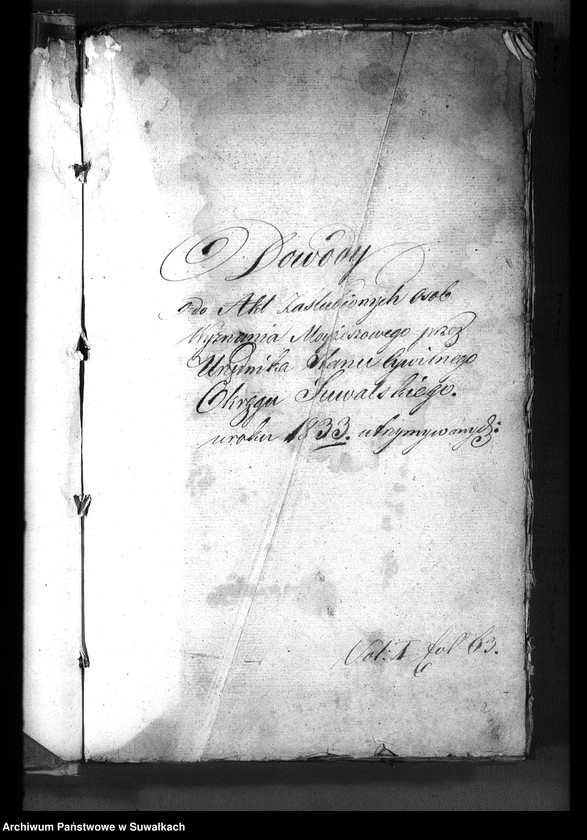 Dowody
do Akt Zaślubionych osob
Wyznania Moyżeszowego przez
Urzędnika Stanu Cywilnego
Okręgu Suwalskiego.
w roku 1833. utrzymywanych:
Vol: I fol 63.
Archiwum Państwowe w Suwałkach